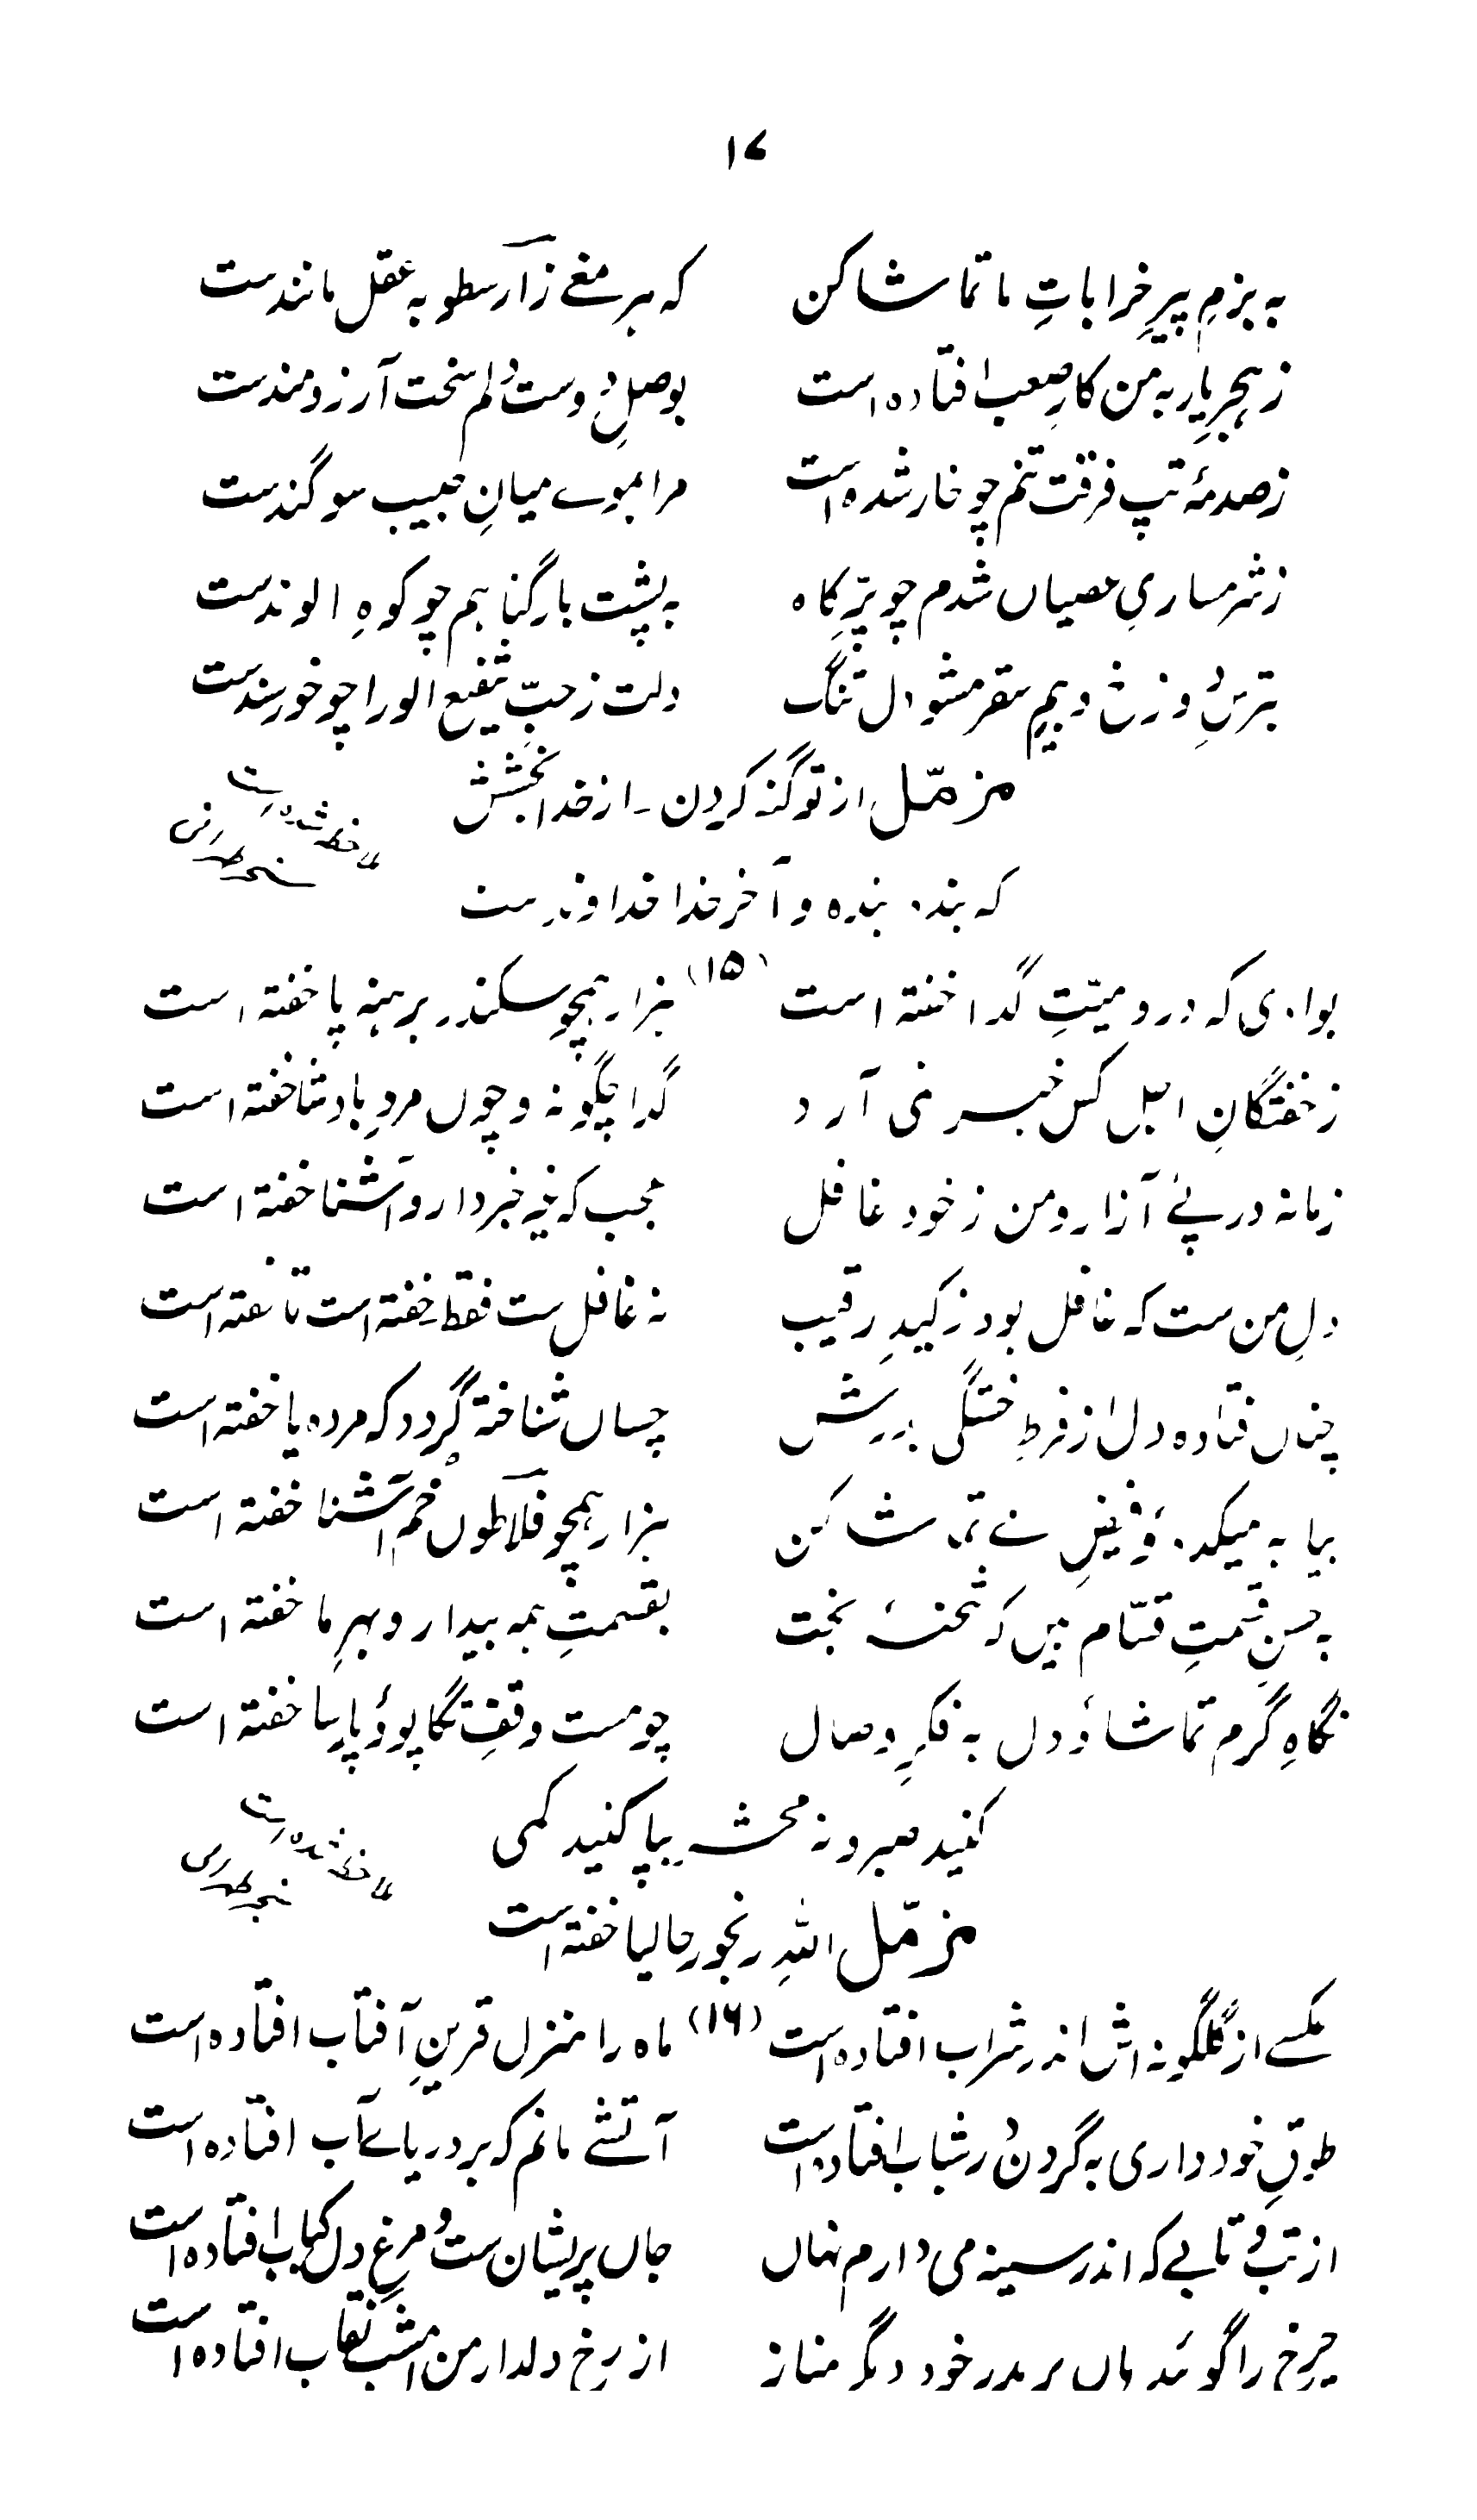 ۱۷
به بزمِ پیرِ خراباتِ ما تماشا کن کہ ہر مغے ز ارسطو بہ عقل مانندست
ز ہجرِ یار بہ من کارِ صعب افتادہ است بوصلِ دوست دلم سخت آرزومندست
ز صدمۂ تپ فرقت تنم چو خار شدہ است مرا بموے میانِ حبیب سوگندست
ز شرمساریِ عصیاں شدم چو پرِّ کاہ بہ پشت بارِ گناہم چو کوہِ الوندست
بترسِ دوزخ و بیمِ سقر مشو دل تنگ دلت ز حبِّ شفیع الورا چو خورسندست
مزمّل از تو گنہ کردن ۔ از خدا بخشش
کہ بندہ بندہ و آخر خدا خداوندست
بوادی کہ درو میّتِ گدا خفتہ است (۱۵) ہزار ہمچو سکندر برہنہ پا خفتہ است
ز خفتگانِ اجل کس خبر نمی آرد گدا چگونہ و چوں مردِ بادشا خفتہ است
زمانہ در پئے آزار و من ز خود غافل عجب کہ غیر خبردار و آشنا خفتہ است
دلِ من ست کہ غافل بود ز کیدِ رقیب نہ غافل ست فقط خفتہ است تا خفتہ است
چناں فتادہ دل از فرطِ خستگی بہ برش چساں شناختہ گردد کہ مردہ یا خفتہ است
بیا بہ میکدہ و فیضِ مے تماشا کن ہزار ہمچو فلاطوں خم آشنا خفتہ است
بہ حسنِ قسمتِ قسّام بیں کہ شحنۂ بخت بقسمتِ ہمہ بیدار و بہرِ ما خفتہ است
نگاہِ گرمِ تماشا و دل بہ فکرِ وصال چو مست وقفِ تگاپو و پارسا خفتہ است
کنید صبر و نہ محشر بپا کنید کمی
مزمّل اللهِ رنجور حالیا خفتہ است
عکسے از گلگونہ اش اندر شراب افتادہ است (۱۶) ماہ را منزل قرینِ آفتاب افتادہ است
طوقِ خودداری بہ گردن در شباب افتادہ است آتشے مانم کہ بر دریاے آب افتادہ است
از تب و تابے کہ اندر سینہ می دارم نہاں جاں پریشان ست و مرغِ دل کباب افتادہ است
چرخ را گوئید ہاں بر بدرِ خود دیگر مناز از رخِ دلدارِ من امشب نقاب افتادہ است